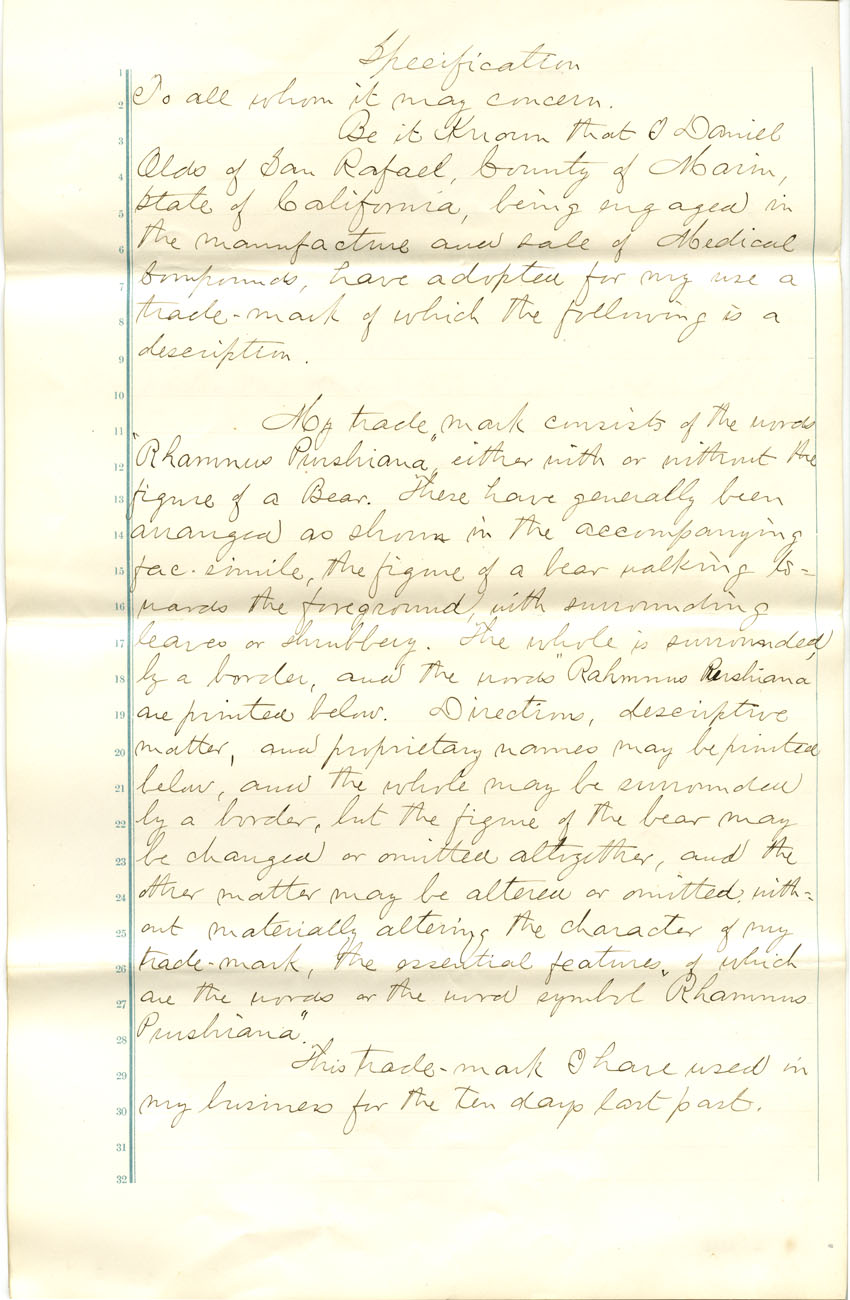 Specification
1
2 To all whom it may concern.
3 Be it Known that I Daniel
4 Olds of San Rafael, County of Marin,
5 State of California, being engaged in
6 the manufacture and sale of Medical
7 Compounds, have adopted for my use a
8 trade-mark of which the following is a
9 description.
10
11 My trade mark consists of the words
12 "Rhamnus Purshiana" either with or without the
13 figure of a Bear. These have generally been
14 arranged as shown in the accompanying
15 fac-simile, the figure of a bear walking to=
16 wards the foreground, with surrounding
17 leaves or shrubbery. The whole is surrounded
18 by a border, and the words "Rahmnus Purshiana
19 are printed below. Directions, descriptive
20 matter, and proprietary names may be printed
21 below, and the whole may be surrounded
22 by a border, but the figure of the bear may
23 be changed or omitted altogether, and the
24 other matter may be altered or omitted, with=
25 out materially altering the character of my
26 trade-mark, the essential features of which
27 are the words or the word symbol "Rhamnus
28 Purshiana".
29 This trade-mark I have used in
30 my business for the ten days last past.
31
32